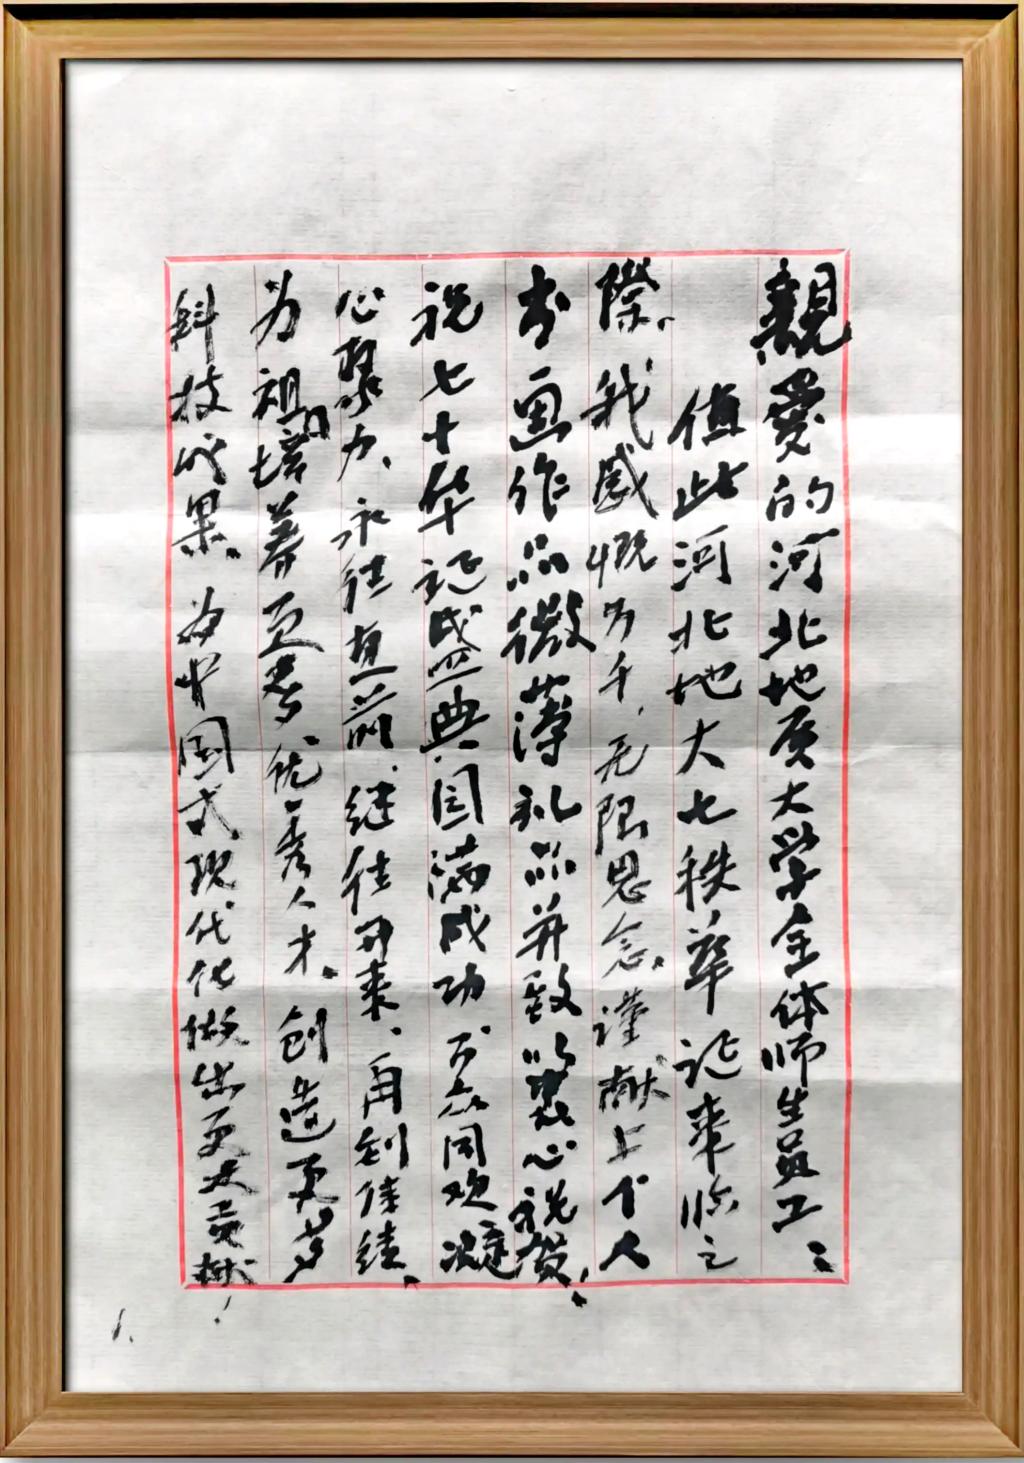 親爱的河北地质大学全体师生员工：
值此河北地大七秩华诞来临之
際，我感慨万千，无限思念，谨献上个人
书画作品微薄礼品并致以衷心祝贺！
祝七十华诞盛典圆满成功，万众同欢，凝
心聚力，永往直前，继往开来，再创佳绩，
为祖国培养更多优秀人才，创造更多
科技成果，为中国式现代化做出更大贡献！
1.